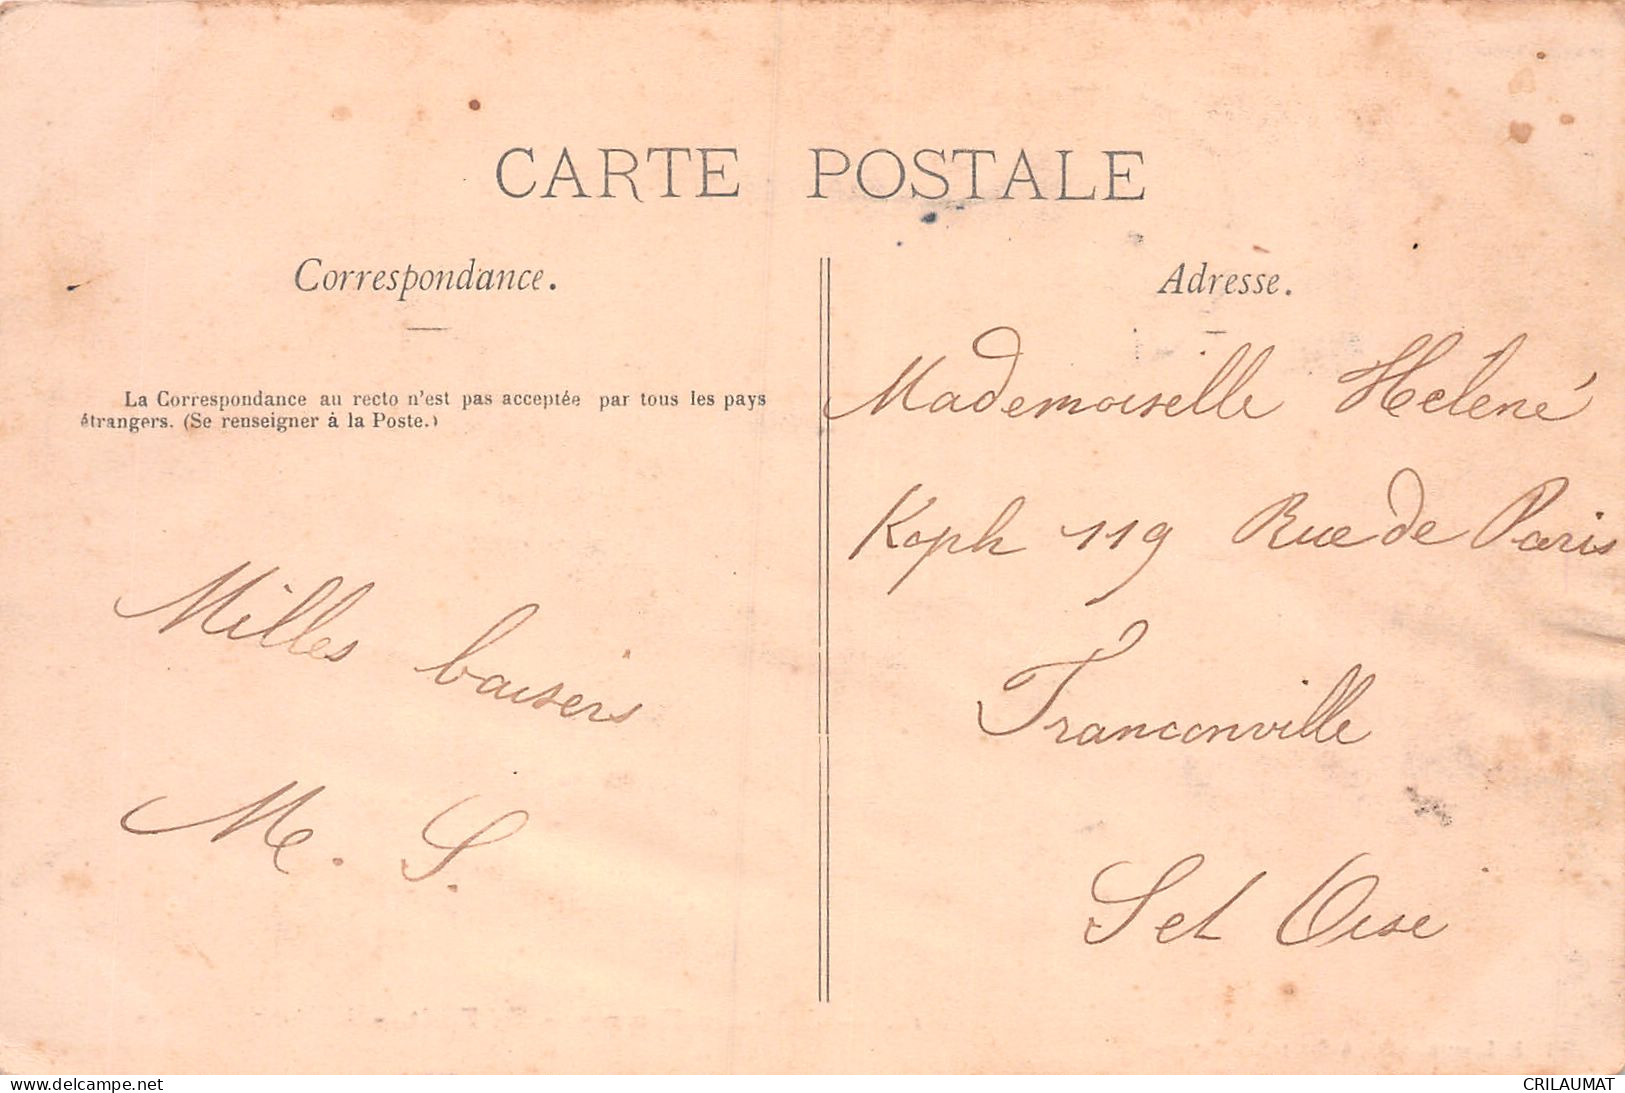 CARTE POSTALE
Correspondance.
La Correspondance au recto n'est pas acceptée par tous les pays
étrangers. (Se renseigner à la Poste.)
Milles baisers
M. S.
Adresse.
Mademoiselle Helené
Koph 119 Rue de Paris
Franconville
S et Oise
delcampe.net
CRILAUMAT